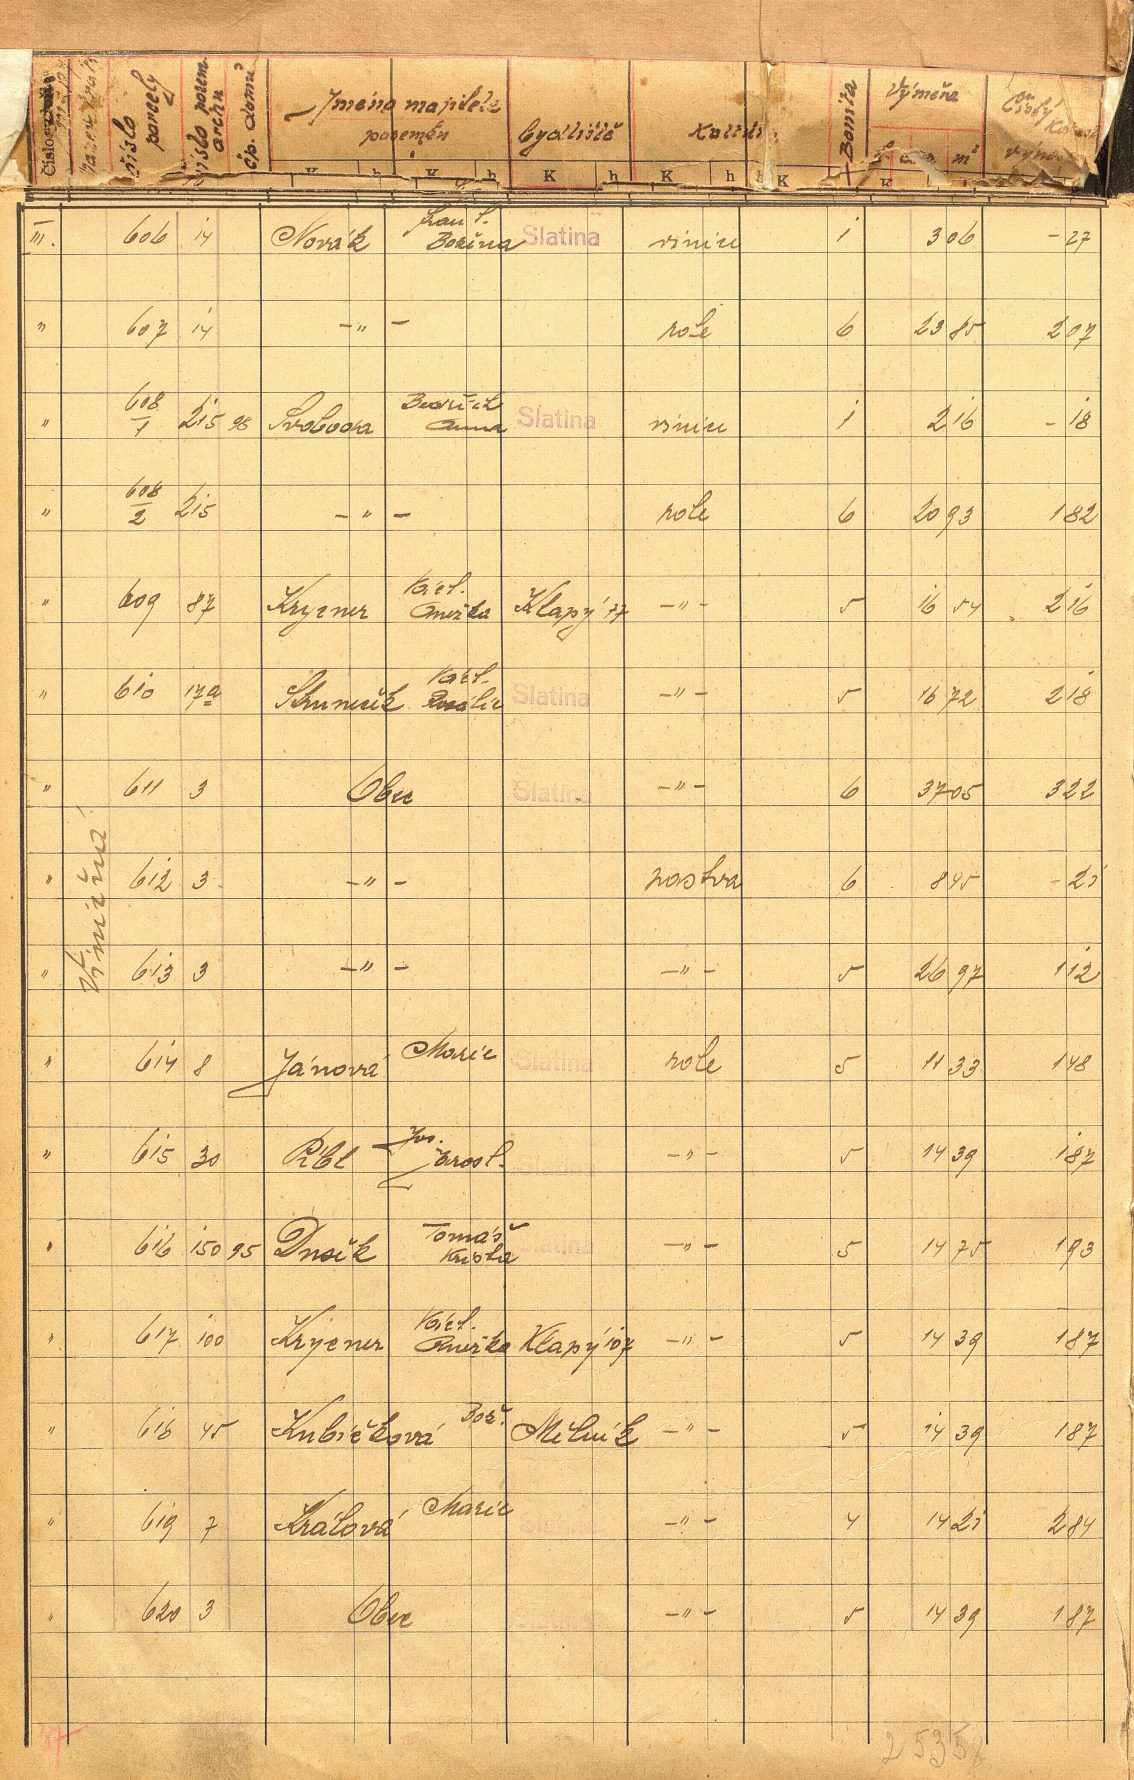 číslo parcely
číslo pozem. archu
čp. domu
Jména majitele
pozemku
bydliště
Kultura
Bonita
Výměra
Čistý
K h K h K h K h K K
m²
III. 606 14 Novák Frant. Božena Slatina vinice 1 3 06 - 27
" 607 14 -"- role 6 23 85 2 07
" 608/1 215 98 Svoboda Bedřich Anna Slatina vinice 1 2 16 - 18
" 608/2 215 -"- role 6 20 93 1 82
" 609 87 Krycner Václ. Anežka Klapý 77 -"- 5 16 54 2 16
" 610 17a Václ. Slatina -"- 5 16 72 2 18
" 611 3 Obec Slatina -"- 6 37 05 3 22
" 612 3 -"- pastva 6 8 45 - 21
Viničná
" 613 3 -"- -"- 5 26 97 1 12
" 614 8 Jánová Marie Slatina role 5 11 33 1 48
" 615 30 Jos. Jarosl. Slatina -"- 5 14 39 1 87
" 616 150 95 Tomáš Slatina -"- 5 14 75 1 93
" 617 100 Krycner Václ. Anežka Klapý 107 -"- 5 14 39 1 87
" 618 45 Kubíčková Bož. Mělník -"- 5 14 39 1 87
" 619 7 Králová Marie -"- 4 14 21 2 84
" 620 3 Obec -"- 5 14 39 1 87
37
2 5358